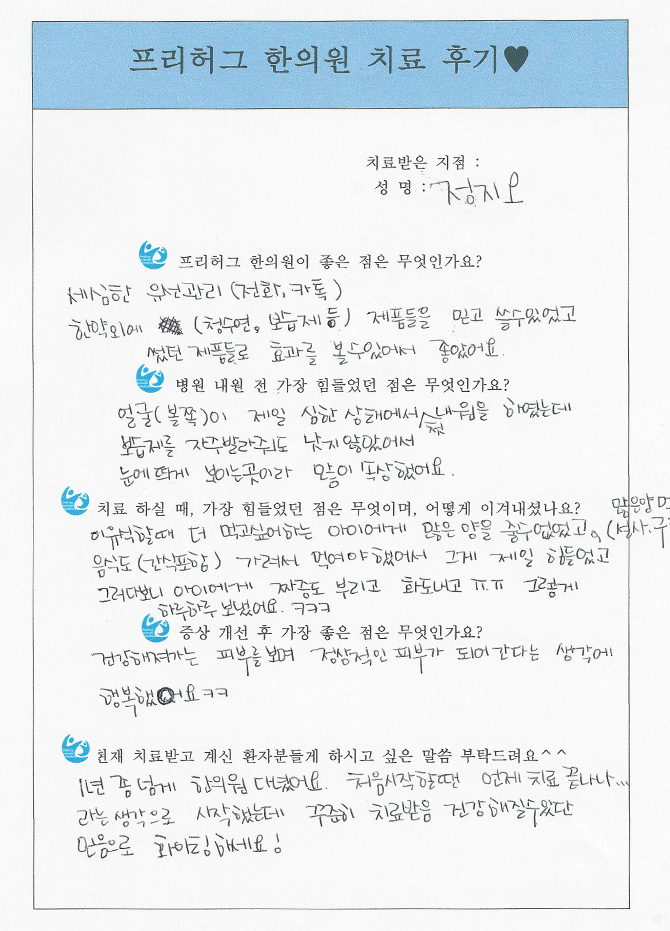 프리허그 한의원 치료 후기♥
치료받은 지점 :
성 명 : 정지오
프리허그 한의원이 좋은 점은 무엇인가요?
세심한 유선관리 (전화, 카톡)
한약외에 (청수연, 보습제 등) 제품들을 믿고 쓸수있었고
썼던 제품들로 효과를 볼수있어서 좋았어요.
병원 내원 전 가장 힘들었던 점은 무엇인가요?
얼굴(볼쪽)이 제일 심한 상태에서 첫 내원을 하였는데
보습제를 자주발라줘도 낫지않았어서
눈에 띄게 보이는곳이라 많이 속상했어요.
치료 하실 때, 가장 힘들었던 점은 무엇이며, 어떻게 이겨내셨나요?
많은양 먹
이유식할때 더 먹고싶어하는 아이에게 많은 양을 줄수없었고,
음식도 (간식포함) 가려서 먹여야 했어서 그게 제일 힘들었고
그러다보니 아이에게 짜증도 부리고 화도내고 ㅠ.ㅠ 그렇게
하루하루 보냈어요. ㅋㅋㅋ
증상 개선 후 가장 좋은 점은 무엇인가요?
건강해져가는 피부를보며 정상적인 피부가 되어간다는 생각에
행복했어요ㅋㅋ
현재 치료받고 계신 환자분들게 하시고 싶은 말씀 부탁드려요^^
1년 좀 넘게 한의원 다녔어요. 처음시작할땐 언제 치료 끝나나...
라는 생각으로 시작했는데 꾸준히 치료받음 건강해질수있단
마음으로 화이팅하세요!